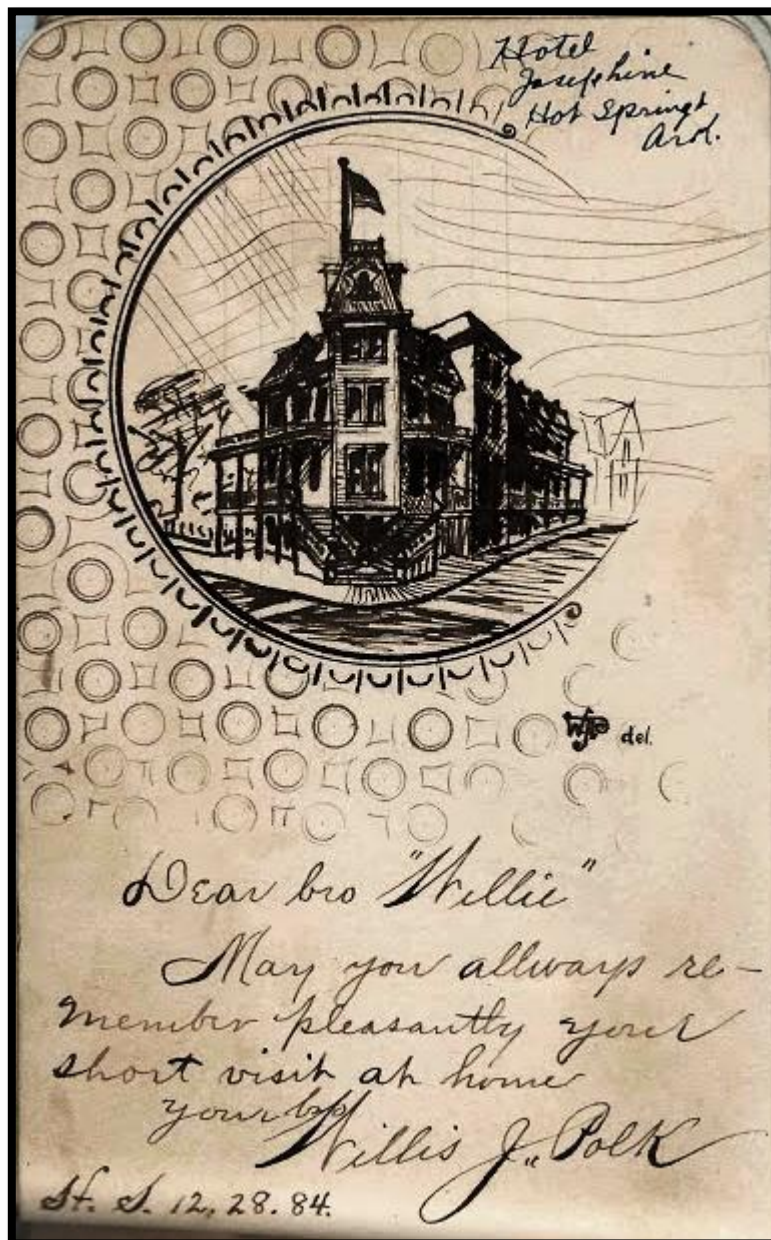 Hotel
Josephine
Hot Springs
Ark.
WJP del.
Dear bro "Willie"
May you allways re-
member pleasantly your
short visit at home
your bro
Willis J. Polk
H. S. 12. 28. 84.